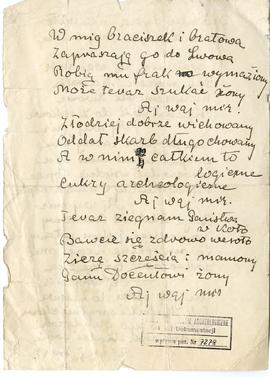 W mig braciszek i bratowa
Zapraszają go do Lwowa
Robią mu frak wymażony
Może teraz szukać żony
Aj waj mir.
Złodziej dobrze wichowany
Oddał skarb długo chowany
A w nim całkiem to
logiczne
Cukry archeologiczne
Aj waj mir.
Teraz żiegnam Państwa
w koło
Bawcie się zdrowo wesoło
Życzę szczęścia i mamony
Panu Docentowi żony
Aj waj mir
ARCHEOLOGICZNE
Dział Dokumentacji
wpływu pot. Nr 7278